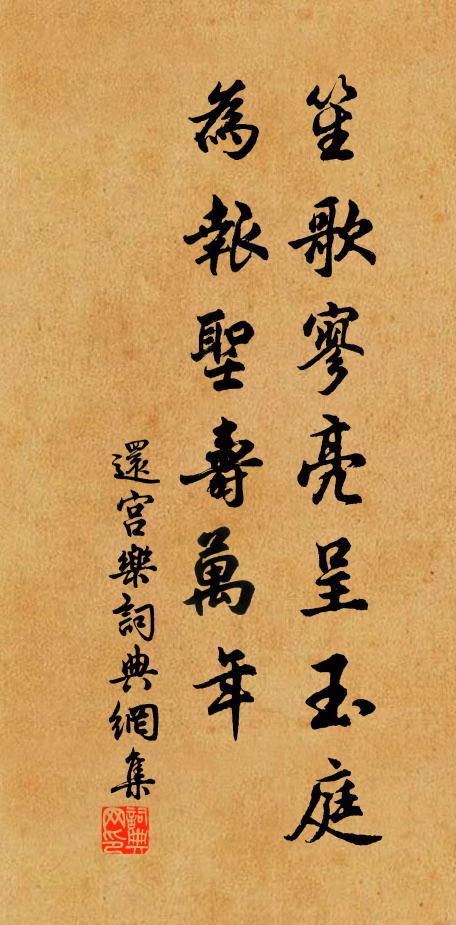 笙歌寥亮呈玉庭
為報聖壽萬年
還宮樂詞典網集
詞典网印